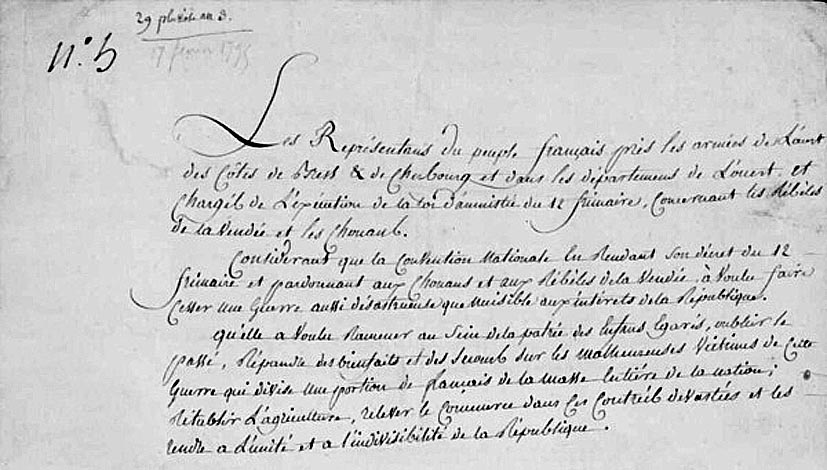 29 pluviôse an 3.
17 février 1795
N.° 5
Les Représentans du peuple français près les armées de L'ouest
des Côtes de Brest & de Cherbourg et dans les départemens de L'ouest, et
Chargés de L'éxécution de la Loi d'amnistie du 12 frimaire, Concernant les Rébèles
de la Vendée et les Chouans.
Considérant que la Convention Nationale En Rendant Son décret du 12
frimaire et pardonnant aux Chouans et aux Rébèles de la Vendée, à Voulu faire
Cesser Une Guerre aussi désastreuse que Nuisible aux intérets de la République.
qu'elle a Voulu Ramener au Sein de la patrie des Enfans Egarés, oublier le
passé, Répandre des bienfaits et des Secours sur les malheureuses Victimes de Cette
Guerre qui divise Une portion de français de la masse Entière de la nation;
Rétablir L'agriculture, relever le Commerce dans Ces Contrées dévastées et les
rendre a L'unité et a l'indivisibilité de la République.